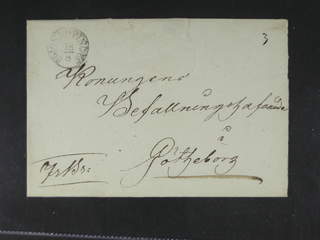 3
Konungens
Befallningshafvande
i
Götheborg
FrBr: